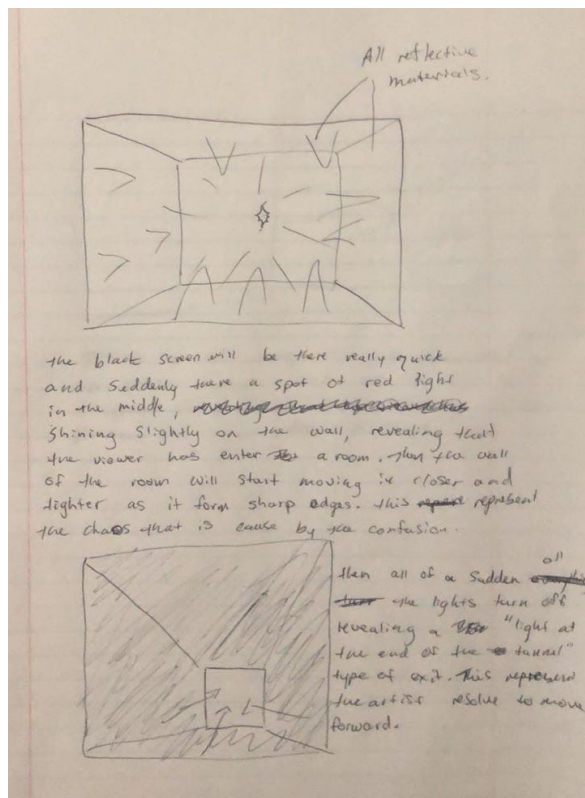 All reflective
materials.
the black screen will be there really quick
and Suddenly there a spot of red light
in the middle,
Shining Slightly on the wall, revealing that
the viewer has enter a room. Then the wall
of the room will start moving in closer and
tighter as it form sharp edges. this represent
the chaos that is cause by the confusion.
then all of a Sudden all
the lights turn off
revealing a "light at
the end of the tunnel"
type of exit. This represent
the artist resolve to move
forward.